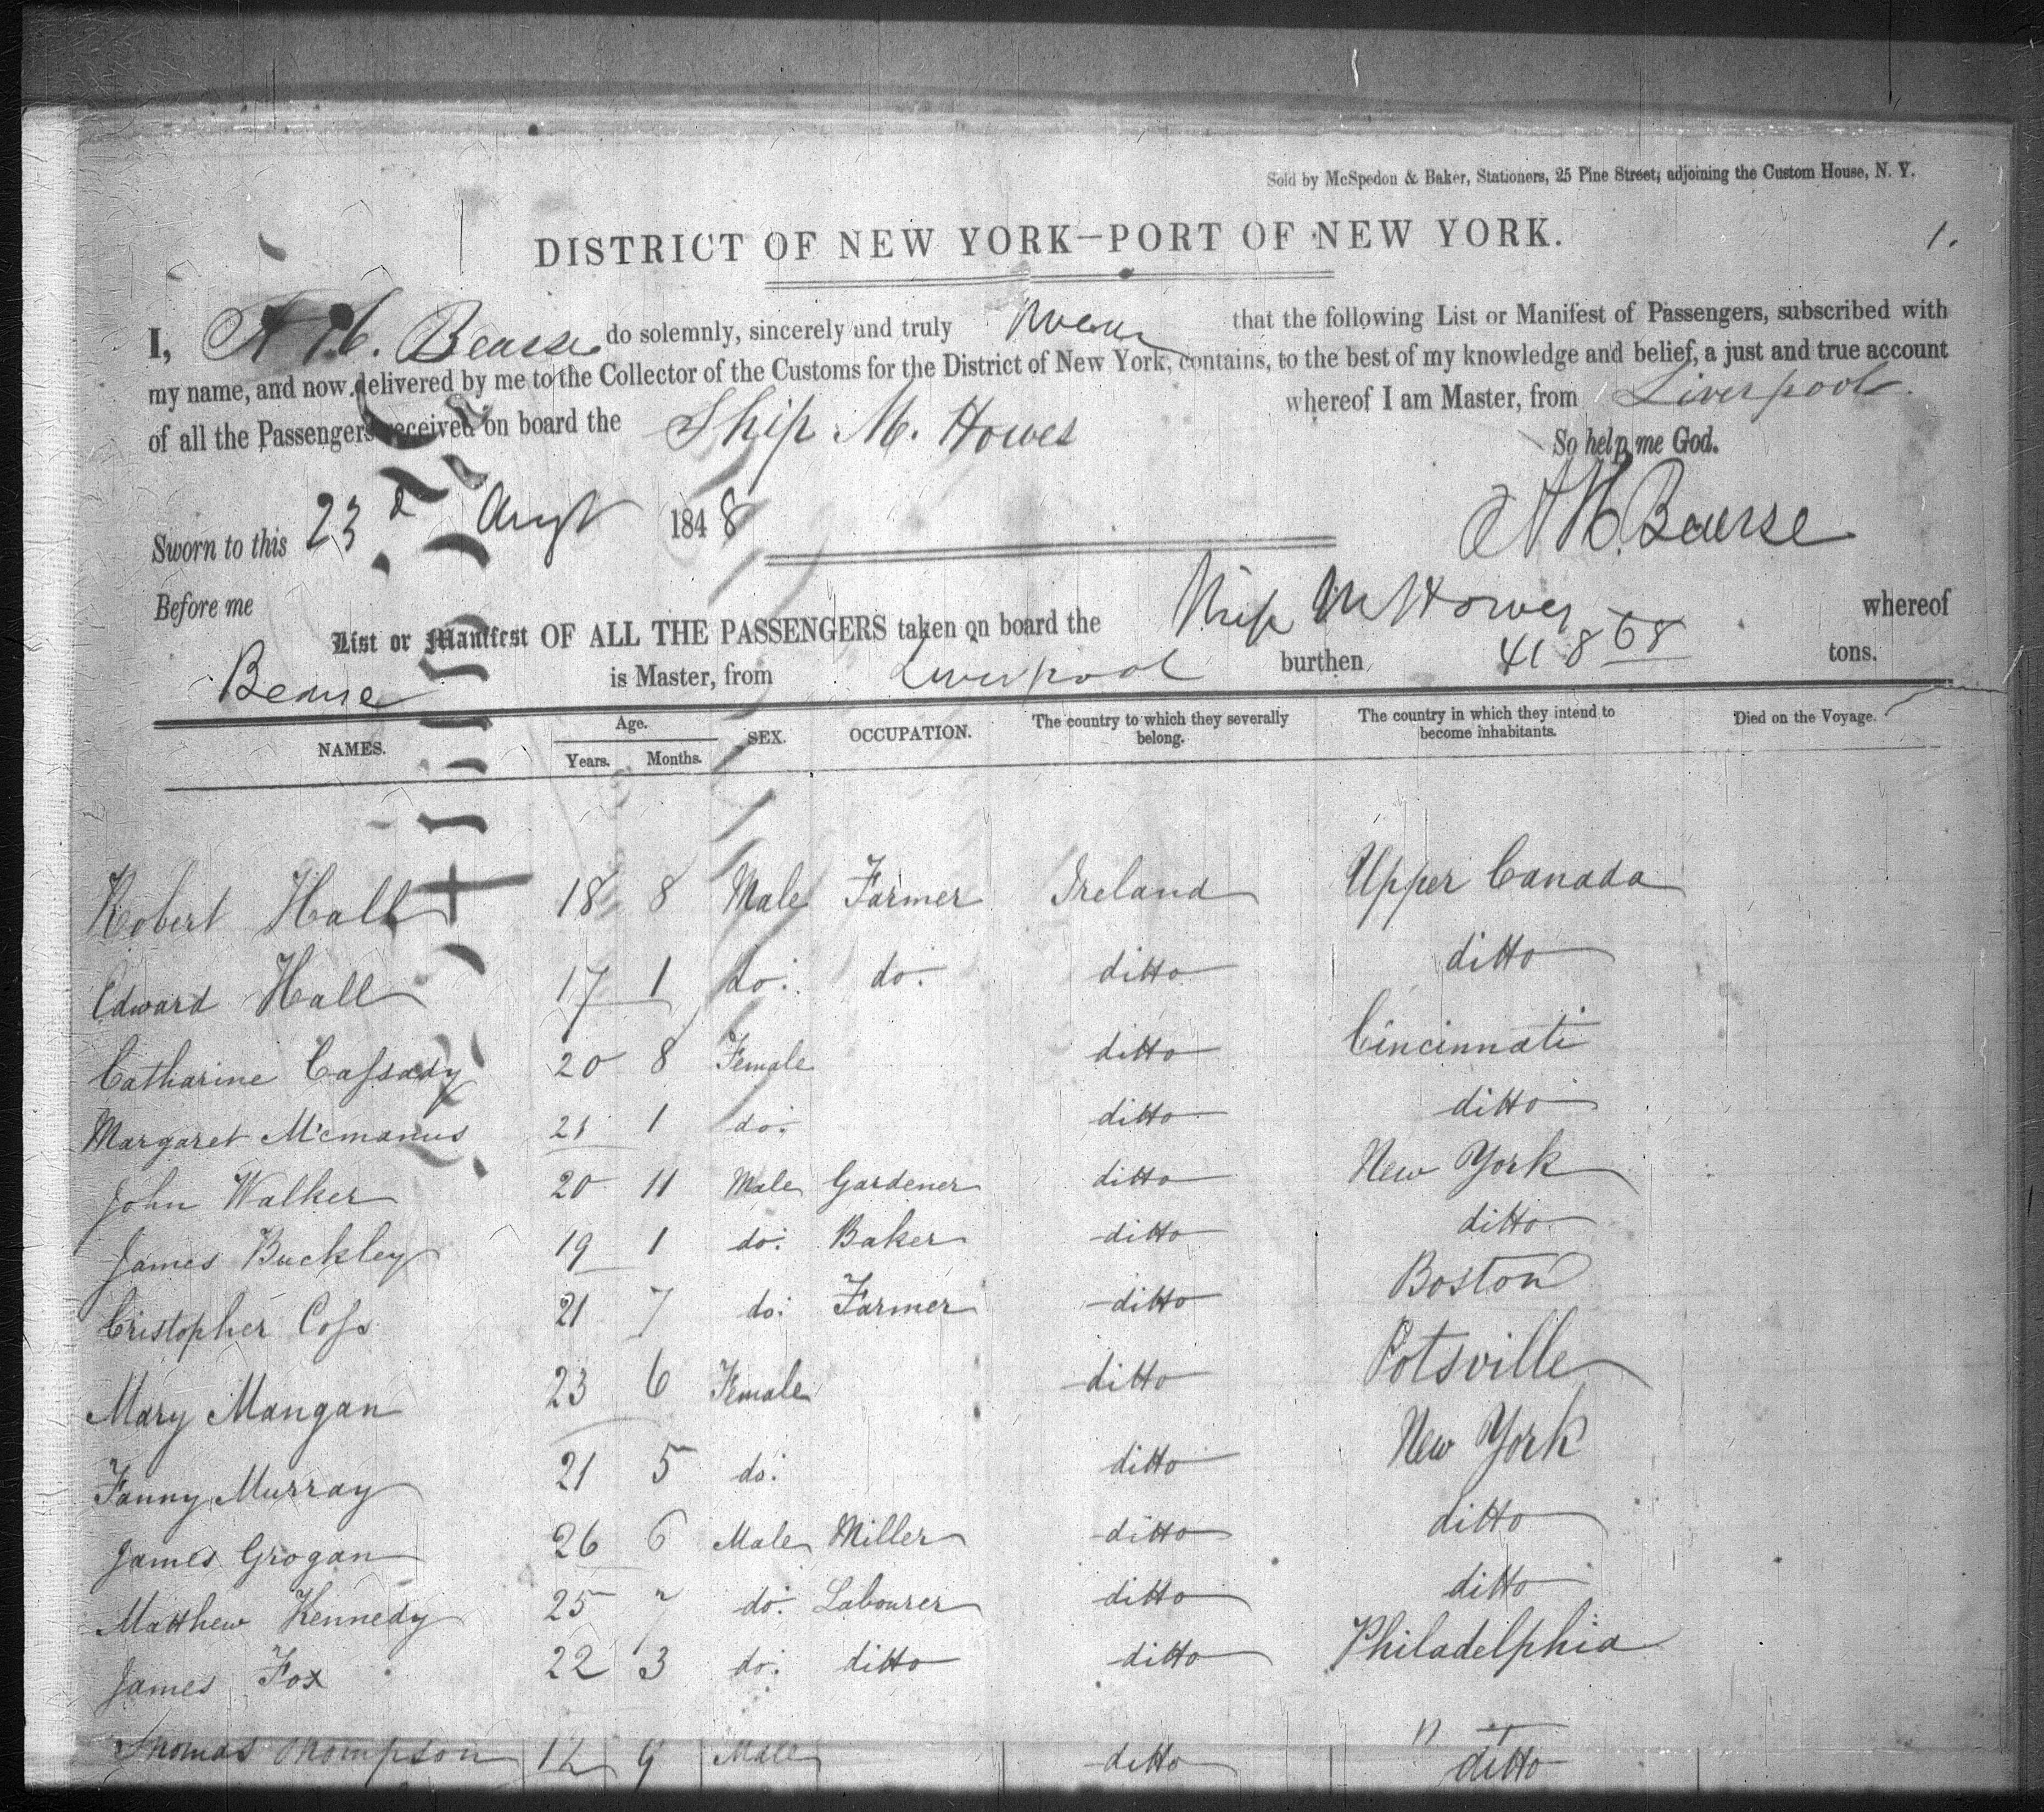 Sold by McSpedon & Baker, Stationers, 25 Pine Street, adjoining the Custom House, N. Y.
DISTRICT OF NEW YORK—PORT OF NEW YORK.
1.
I, Bearse do solemnly, sincerely and truly swear that the following List or Manifest of Passengers, subscribed with
my name, and now delivered by me to the Collector of the Customs for the District of New York, contains, to the best of my knowledge and belief, a just and true account
of all the Passengers received on board the Ship M. Howes whereof I am Master, from Liverpool.
So help me God.
Sworn to this 23d Augt 1848
Bearse
Before me
List or Manifest OF ALL THE PASSENGERS taken on board the Ship M Howes whereof
Bearse is Master, from Liverpool burthen 418 68 tons.
NAMES. Age. Years. Months. SEX. OCCUPATION. The country to which they severally belong. The country in which they intend to become inhabitants. Died on the Voyage.
Robert Hall 18 8 Male Farmer Ireland Upper Canada
Edward Hall 17 1 do: do: ditto ditto
Catharine Cassady 20 8 Female ditto Cincinnati
Margaret McManus 21 1 do: ditto ditto
John Walker 20 11 Male Gardener ditto New York
James Buckley 19 1 do: Baker ditto ditto
Cristopher Coss 21 7 do: Farmer ditto Boston
Mary Mangan 23 6 Female ditto Potsville
Fanny Murray 21 5 do: ditto New York
James Grogan 26 6 Male Miller ditto ditto
Matthew Kennedy 25 7 do: Labourer ditto ditto
James Fox 22 3 do: ditto ditto Philadelphia
Thomas Thompson 12 9 Male ditto ditto